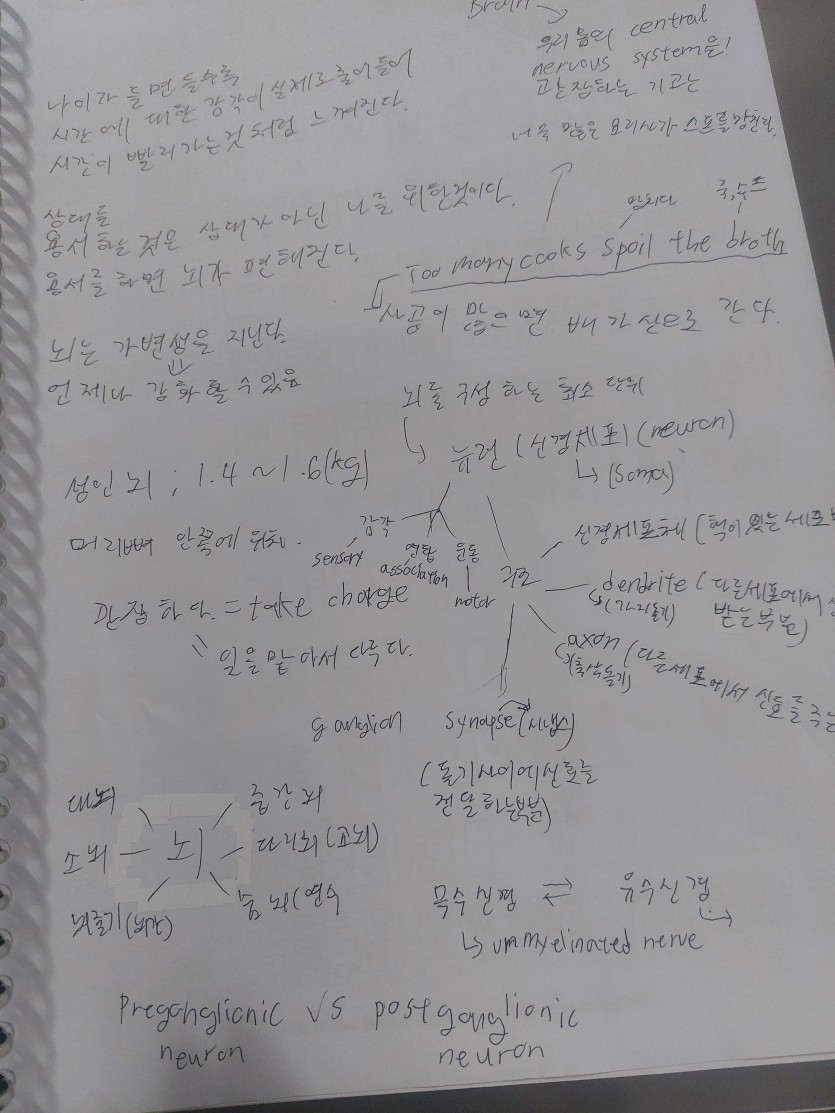 Brain
우리 몸의 central
nervous system을!
관장하는 기고는
너무 많은 요리사가 스프를 망친다.
나이가 들면 들수록
시간에 대한 감각이 실제로 줄어들어
시간이 빨리 가는것 처럼 느껴진다.
상대를
용서하는 것은 상대가 아닌 나를 위한것이다.
용서를 하면 뇌가 편해진다.
망치다 죽,수프
Too many cooks spoil the broth
사공이 많으면 배가 산으로 간다.
뇌는 가변성을 지닌다.
언제나 강화할 수 있음
뇌를 구성하는 최소 단위
뉴런 (신경세포) (neuron)
(soma)
성인 뇌 ; 1.4 ~ 1.6(kg)
머리뼈 안쪽에 위치.
감각 연합 운동
sensory association motor
구조
신경세포체 (핵이 있는 세포
dendrite (다른세포에서
(가지돌기) 받는 부분)
axon (다른세포에서 신호를 주는
(축삭돌기)
관장하다. = take charge
일을 맡아서 다루다.
ganglion
synapse (시냅스)
(돌기사이에 신호를
전달하는 부분)
대뇌 중간뇌
소뇌 뇌 다리뇌(교뇌)
뇌줄기(뇌간) 숨뇌(연수
무수신경 ⇄ 유수신경
unmyelinated nerve
Preganglionic VS postganglionic
neuron neuron